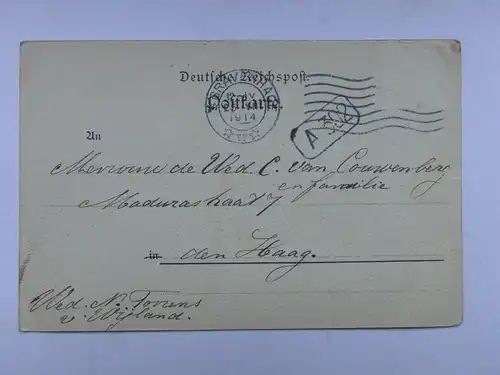 Deutsche Reichspost.
Postkarte.
'S GRAVENHAGE
1914
An
Mevrouw de Wed. C. van Couwenberg
en familie
Madurastraat 7
in den Haag.
Wed. N. Torrens
v. Wijland.